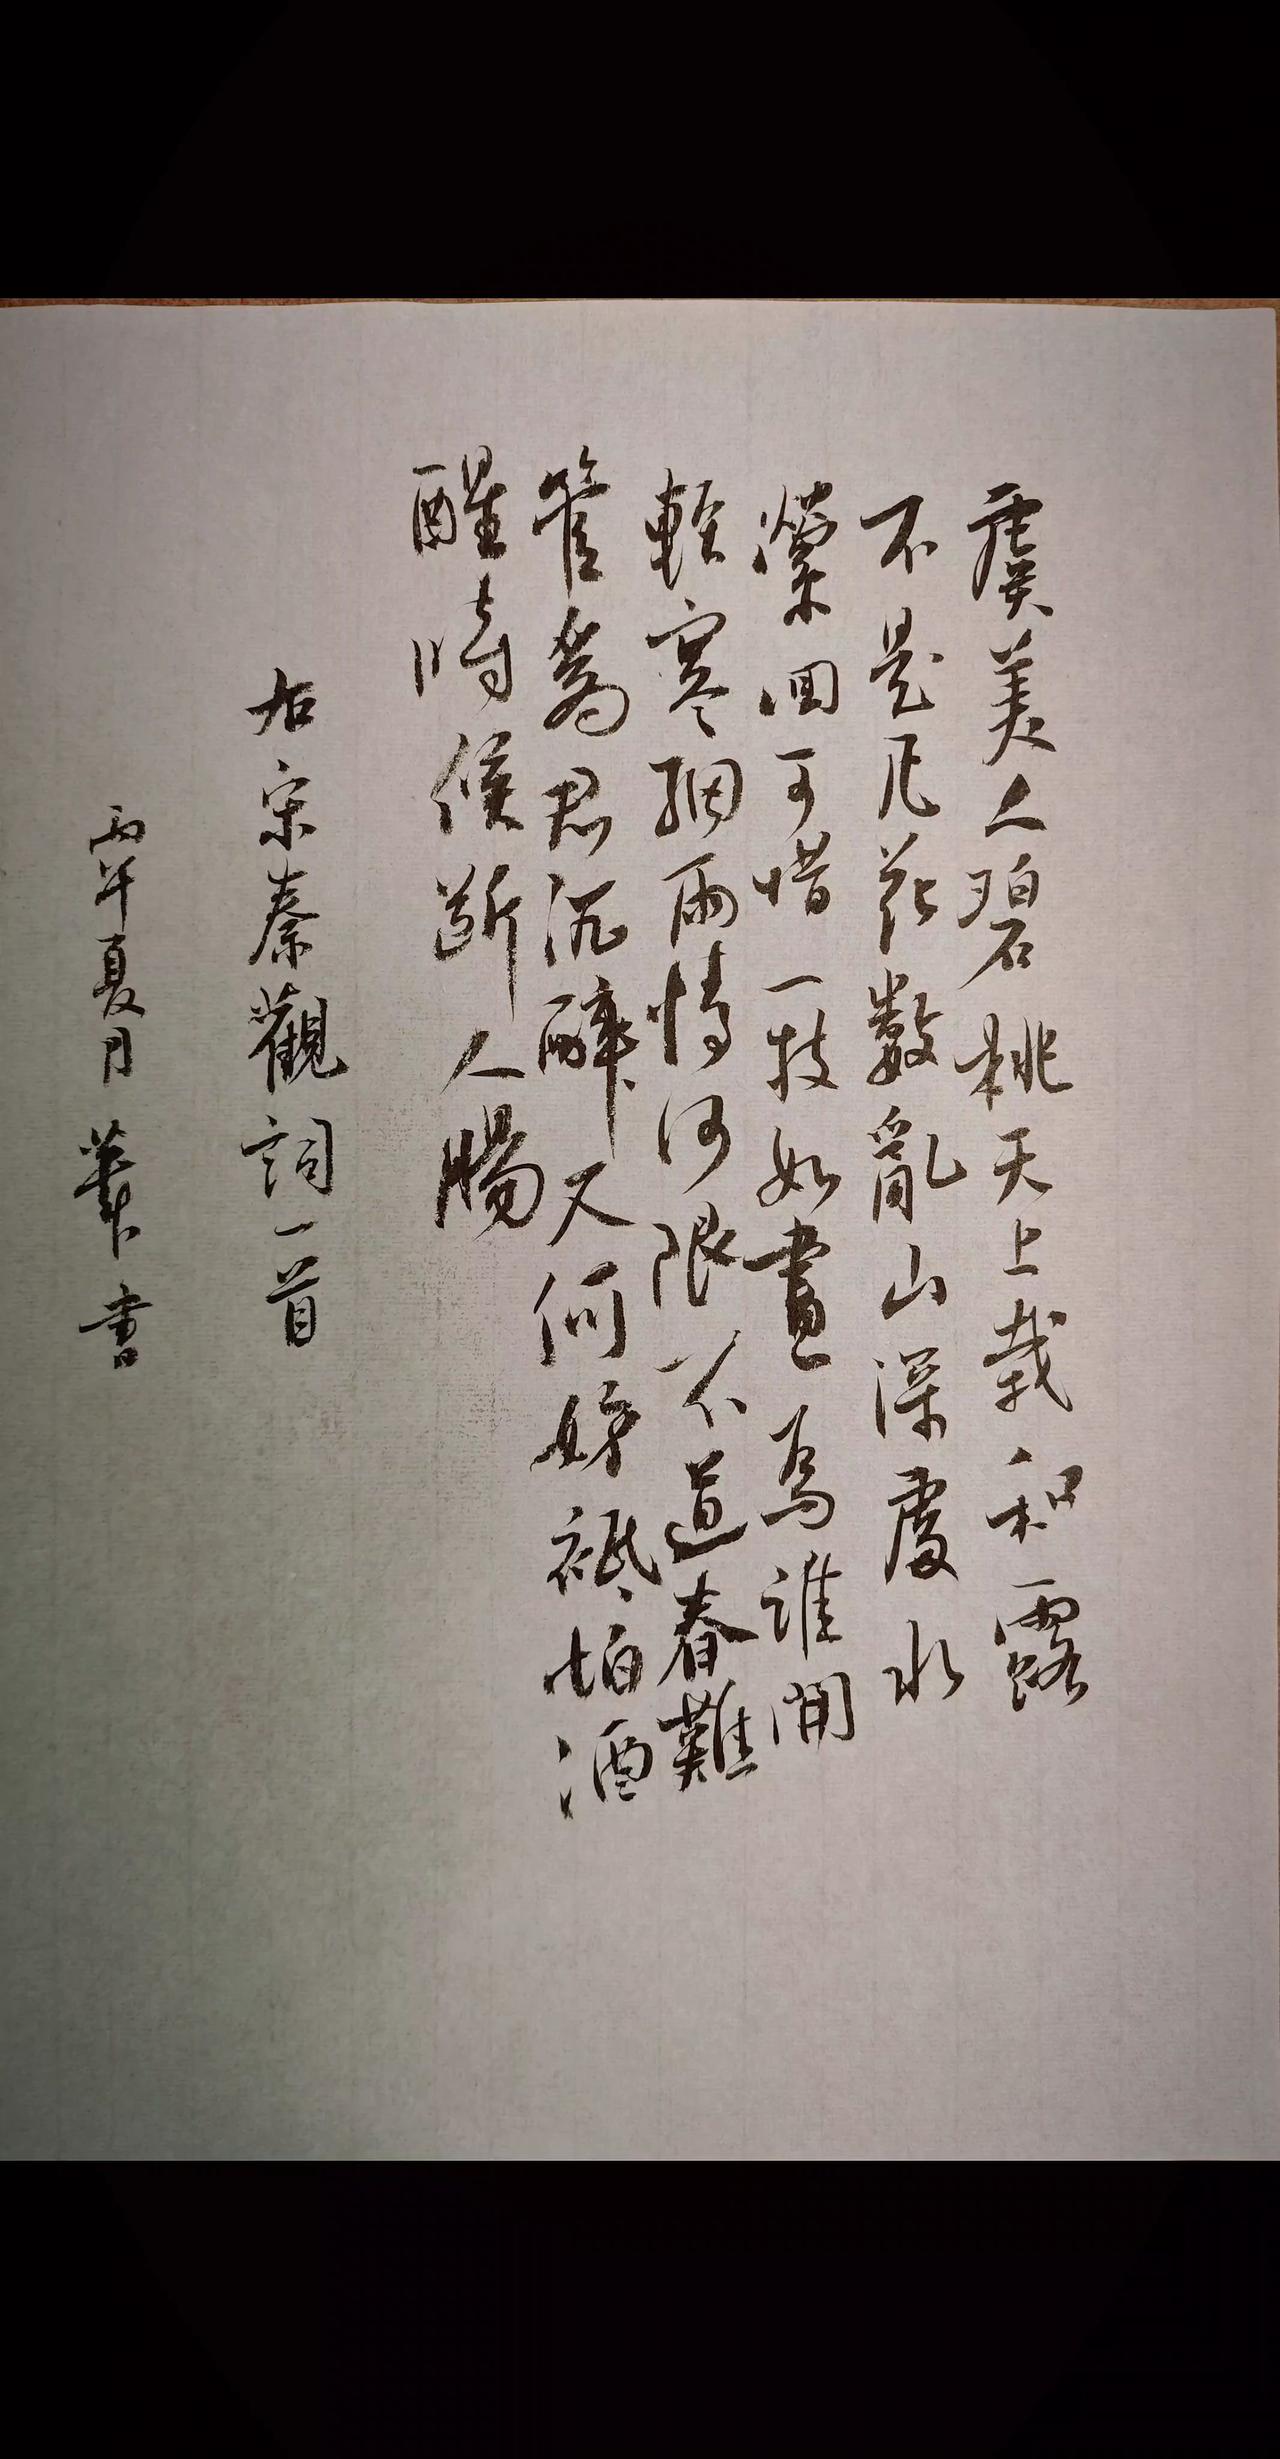 虞美人碧桃天上栽和露
不是凡花數亂山深處水
縈回可惜一枝如畫為誰開
輕寒細雨情何限不道春難
管為君沉醉又何妨祗怕酒
醒時候斷人腸
右宋秦觀詞一首
丙午夏月華書